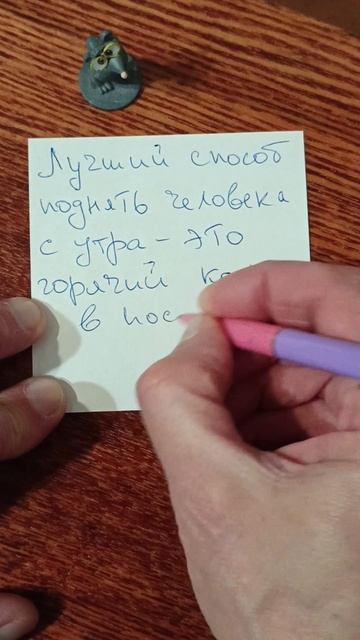 Лучший способ
поднять человека
с утра - это
горячий
в